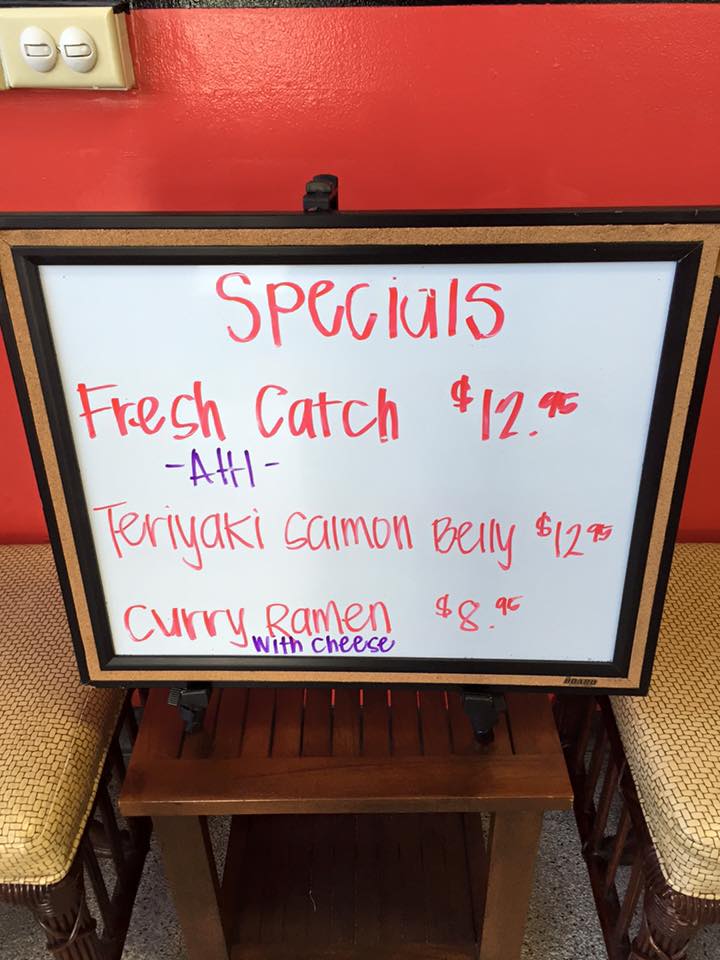 Specials
Fresh Catch $12.95
-AHI-
Teriyaki Salmon Belly $12 95
Curry Ramen $8.95
With Cheese
BOARD